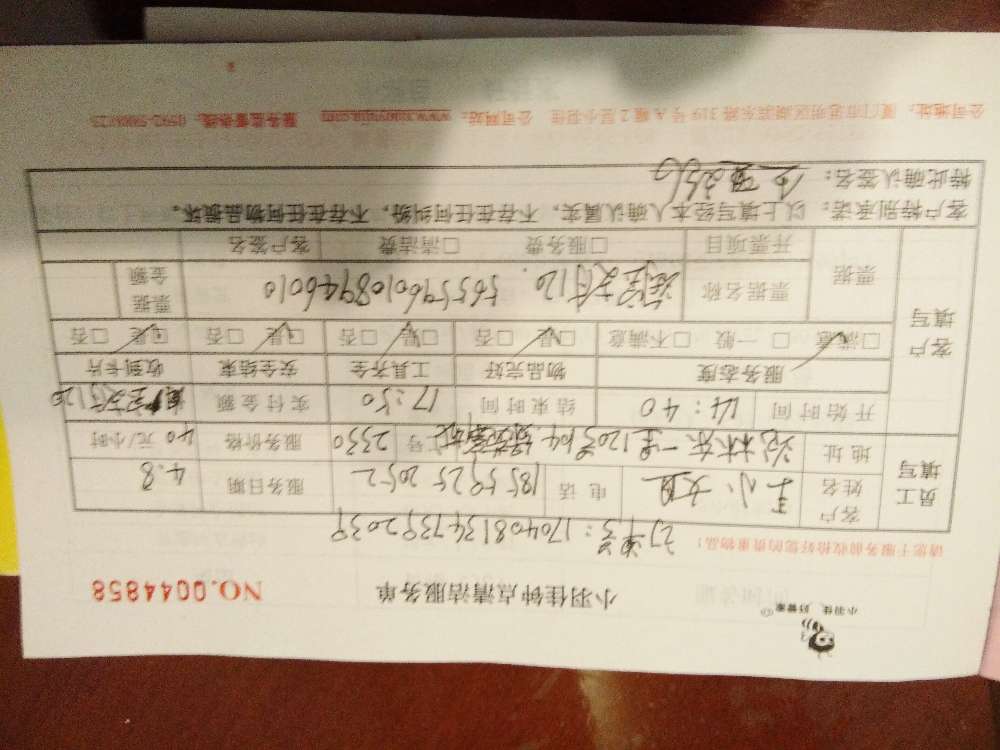 小羽佳 好管家
小羽佳钟点清洁服务单 NO.0044858
请您于服务前收拾好您的贵重物品!
订单号:1704081347392039
员工填写 客户姓名 王小姐 电话 185 5925 2052 服务日期 4.8
地址 120 号 2330 服务价格 40 元/小时
开始时间 14:40 结束时间 17:50 实付金额 120
客户填写 服务态度 物品完好 工具齐全 安全结束 收到卡片
□满意 □一般 □不满意 □是 □否 □是 □否 □是 □否 □是 □否
票据 票据名称 支付120. 票据金额
开票项目 □服务费 □清洁费 客户签名
客户特别承诺:以上填写经本人确认属实,不存在任何纠纷,不存在任何物品损坏。
特此确认签名:
公司地址:厦门市思明区湖滨东路319号A幢2层小羽佳 公司网站:www.xiaoyujia.com 服务监督热线:0592-5988125